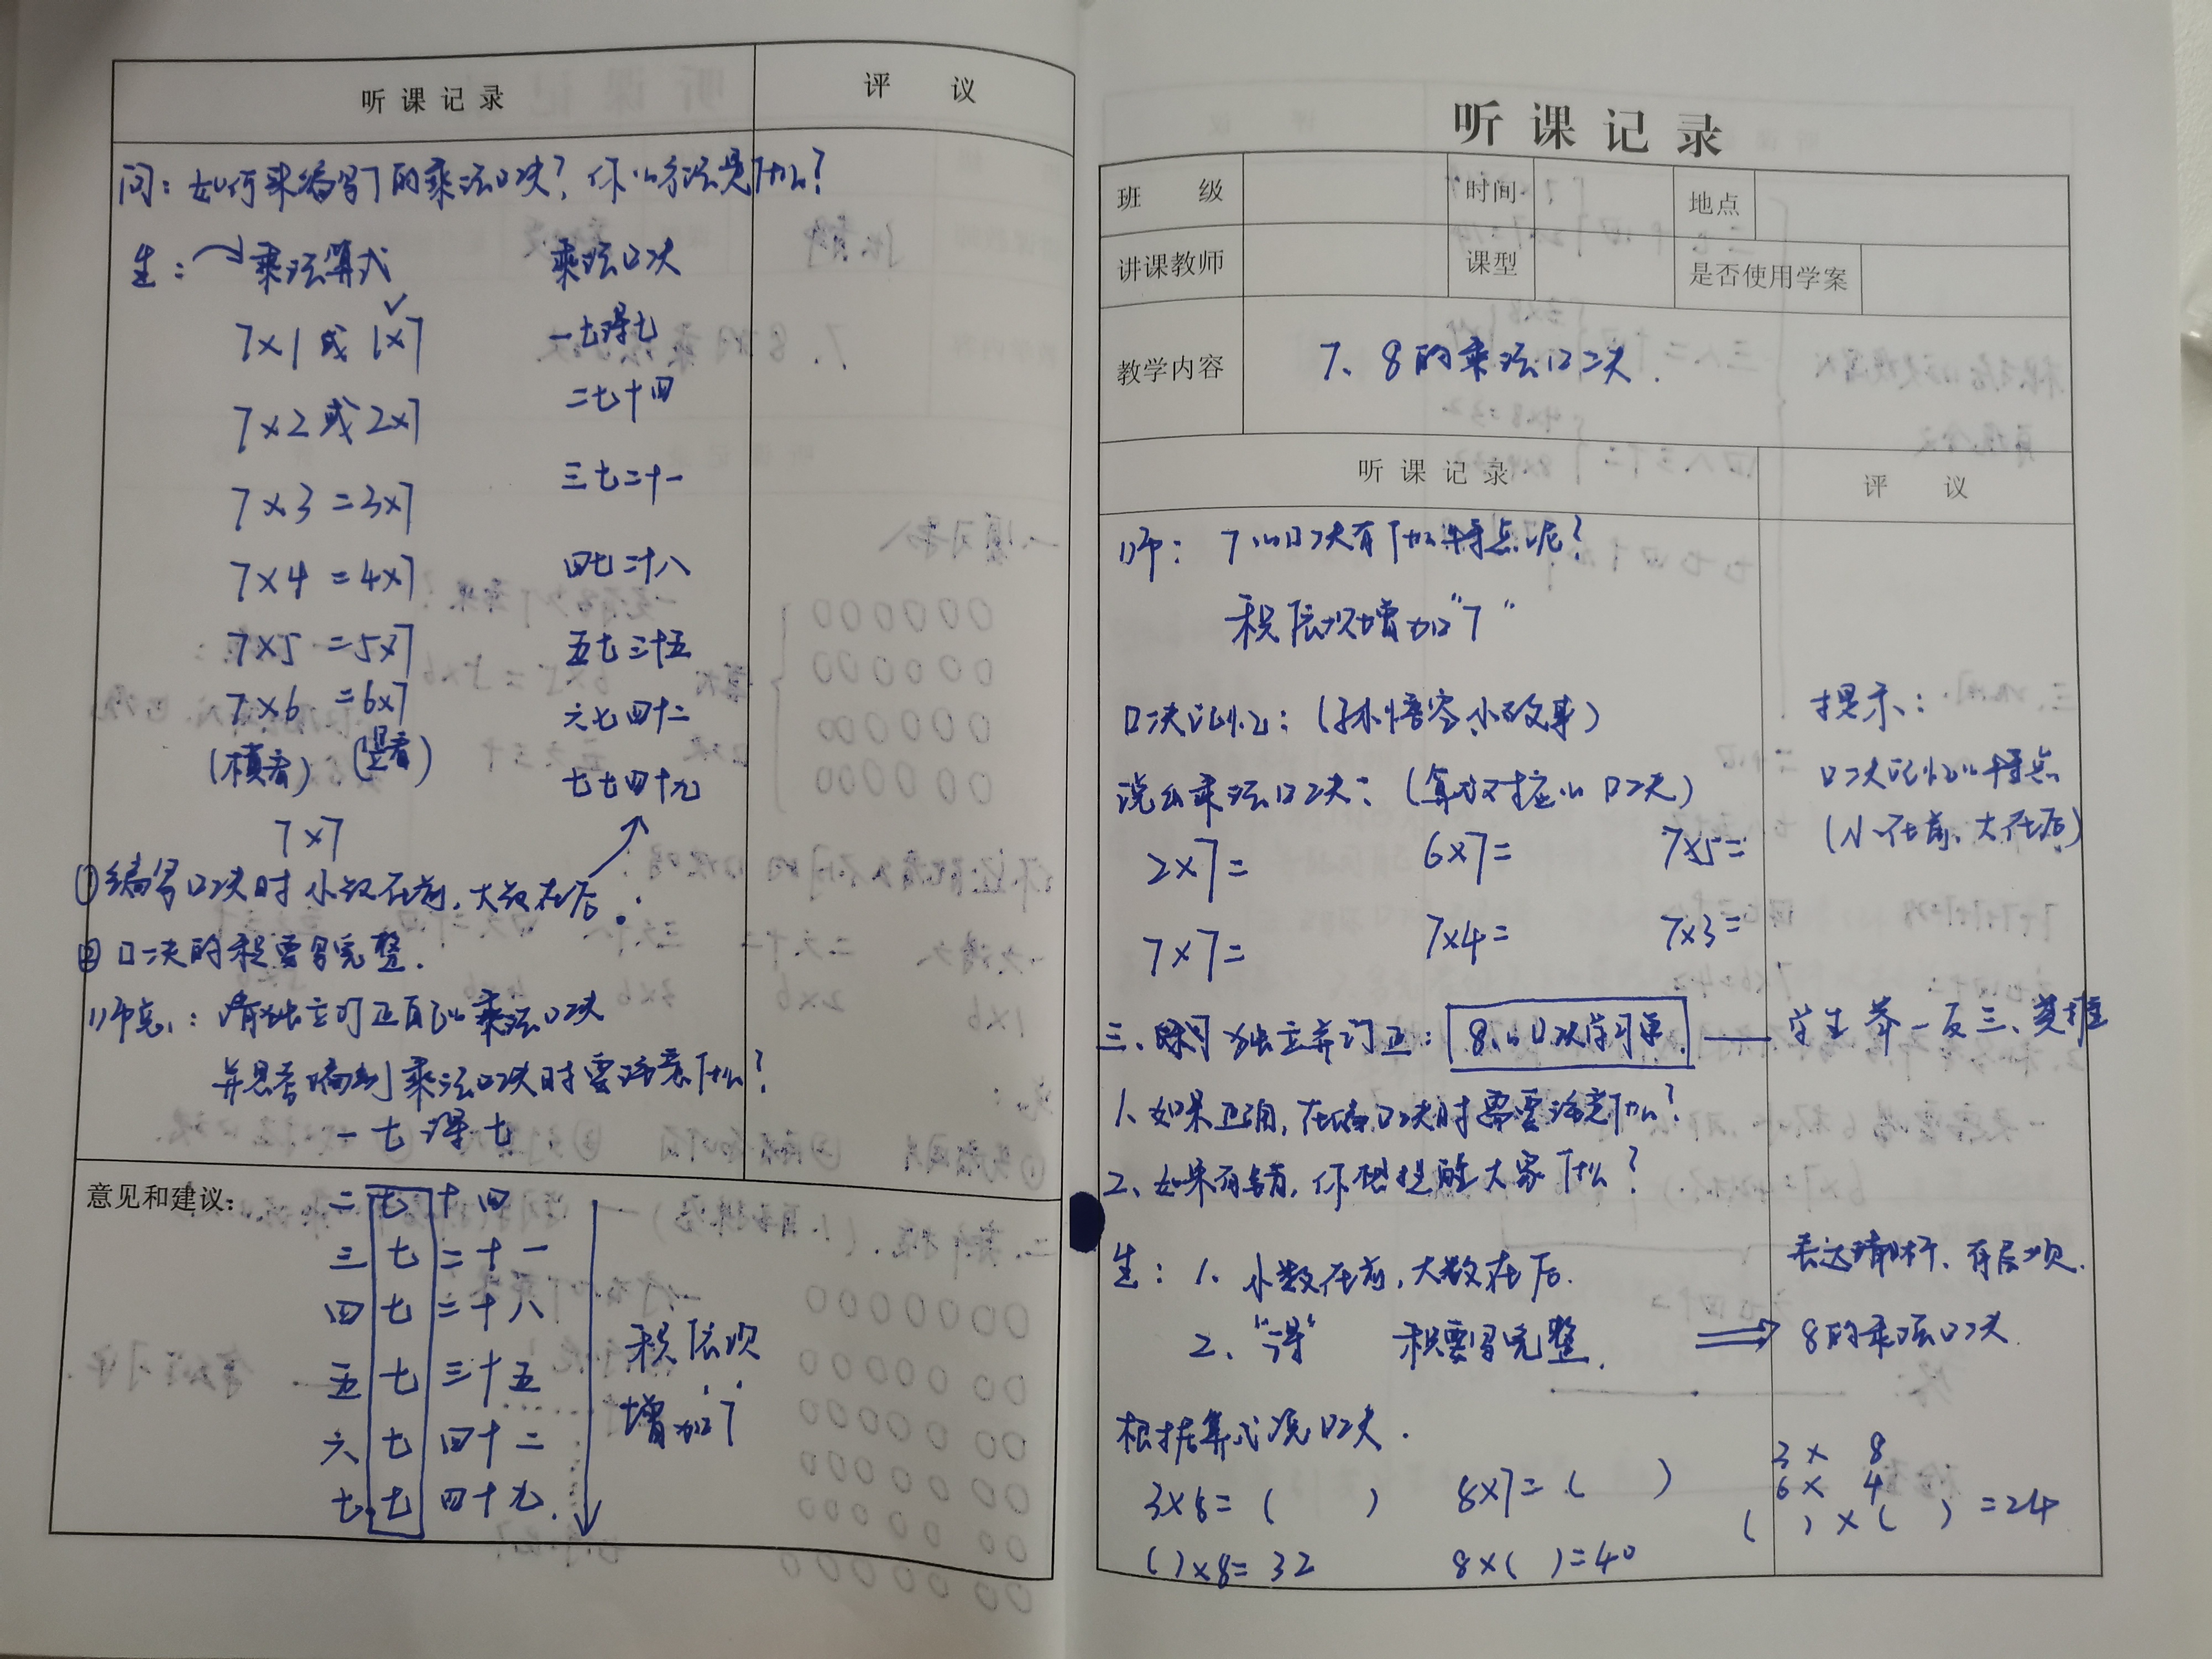 听课记录 评议
问：如何来编写7的乘法口决？你的方法是什么？
生：乘法算式 乘法口决
7×1 或 1×7 ✓ 一七得七
7×2 或 2×7 二七十四
7×3 = 3×7 三七二十一
7×4 = 4×7 四七二十八
7×5 = 5×7 五七三十五
7×6 = 6×7 六七四十二
(横看) (竖看) 七七四十九
7×7
①编写口决时小数在前，大数在后。
②口决的积要写完整.
师总：请独立订正自己的乘法口决
并思考编到乘法口决时要注意什么？
一七得七
意见和建议：
二七十四
三七二十一
四七二十八
五七三十五
六七四十二
七七四十九.
积依次
增加7
听课记录
班级 时间 地点
讲课教师 课型 是否使用学案
教学内容 7、8的乘法口决.
听课记录 评议
师：7的口决有什么特点呢？
积依次增加"7"
口决记忆：(孙悟空小故事)
提示：
口决记忆的特点
(小在前、大在后)
说出乘法口决：(算式对应的口决)
2×7= 6×7= 7×5=
7×7= 7×4= 7×3=
三、练习 独立并订正：8的口决学习单 —— 学生举一反三、类推
1、如果正确，在编口决时需要注意什么？
2、如果有错，你想提醒大家什么？
生：1、小数在前，大数在后.
2、"得" 积要写完整. ⇒ 8的乘法口决
表达清晰、有层次.
根据算式说口决.
3×8=( ) 8×7=( )
( )×8=32 8×( )=40
3× 8
6× 4
( )×( )=24